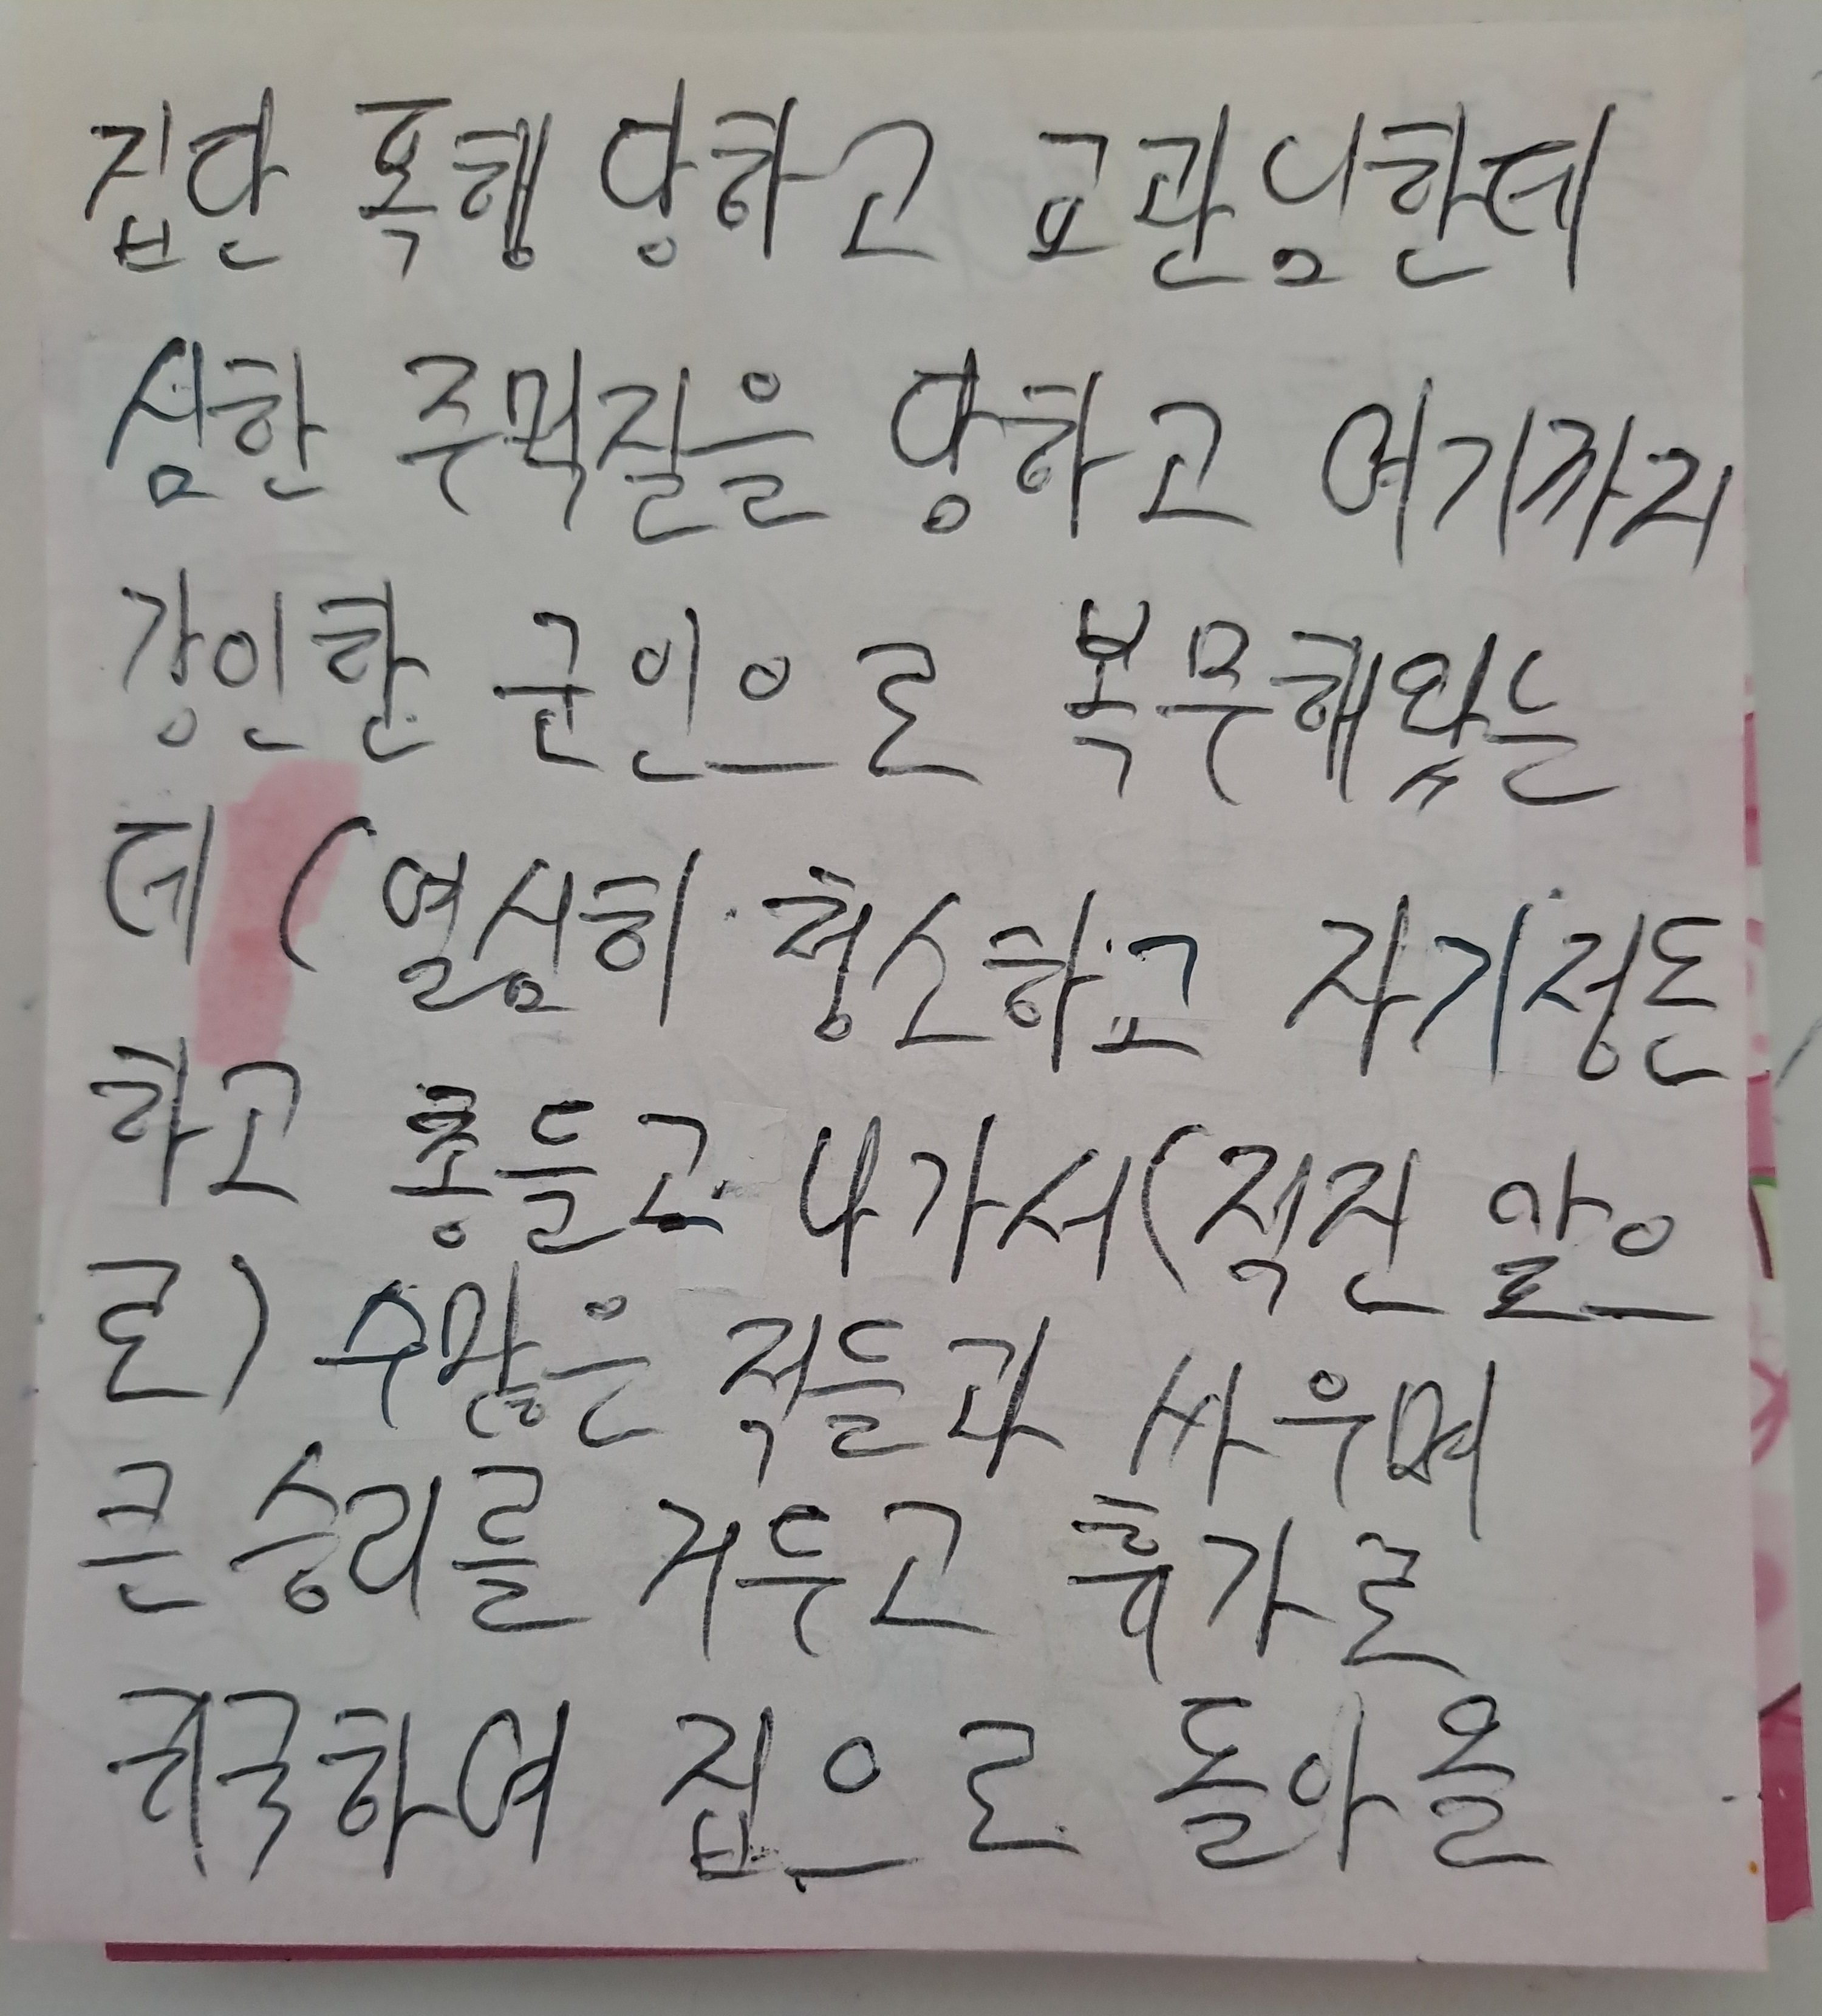 집단 폭행 당하고 교관님한테
심한 주먹질을 당하고 여기까지
강인한 군인으로 복무해왔는
데 (열심히 청소하고 자기정돈
하고 총들고 나가서(적진 앞으
로) 수많은 적들과 싸우며
큰 승리를 거두고 휴가로
귀국하여 집으로 돌아올